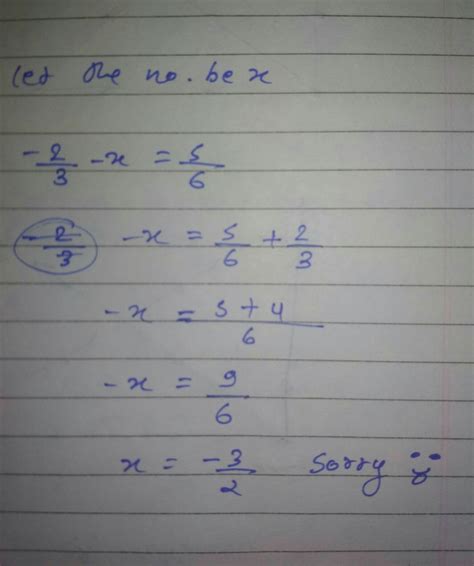 let the no. be x
-2/3 - x = 5/6
-2/3 -x = 5/6 + 2/3
-x = 5+4/6
-x = 9/6
x = -3/2 Sorry